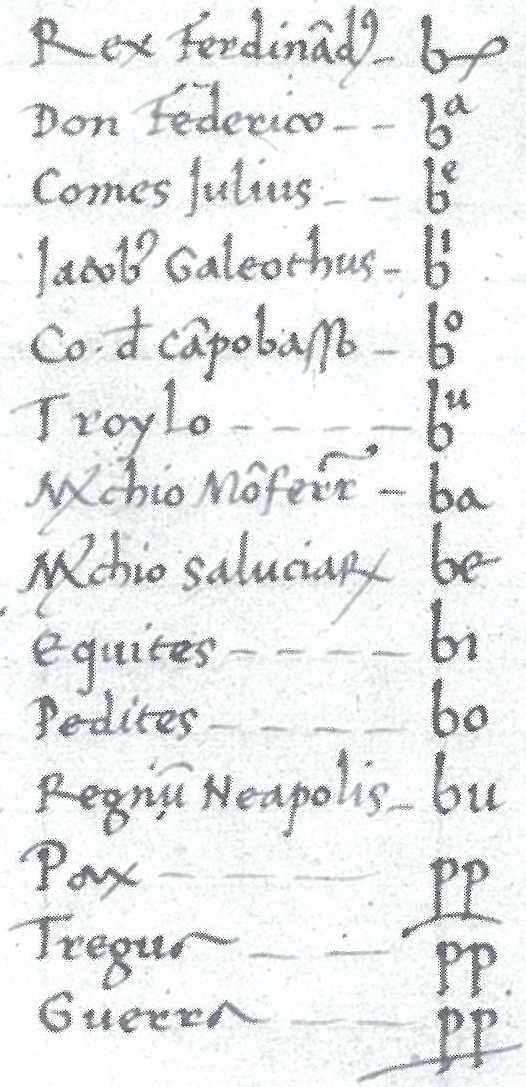 Rex Ferdinãdꝰ - bꝭ
Don Federico - - bᵃ
Comes Julius - - bᵉ
Jacobꝰ Galeothus - bⁱ
Co. d cãpobasso - bᵒ
Troylo - - - - bᵘ
Mchio Mõferr - ba
Mchio saluciaꝝ be
equites - - - - bi
Pedites - - - - bo
Regnũ Neapolis - bu
Pax - - - pp
Tregua - - pp
Guerra - - pp